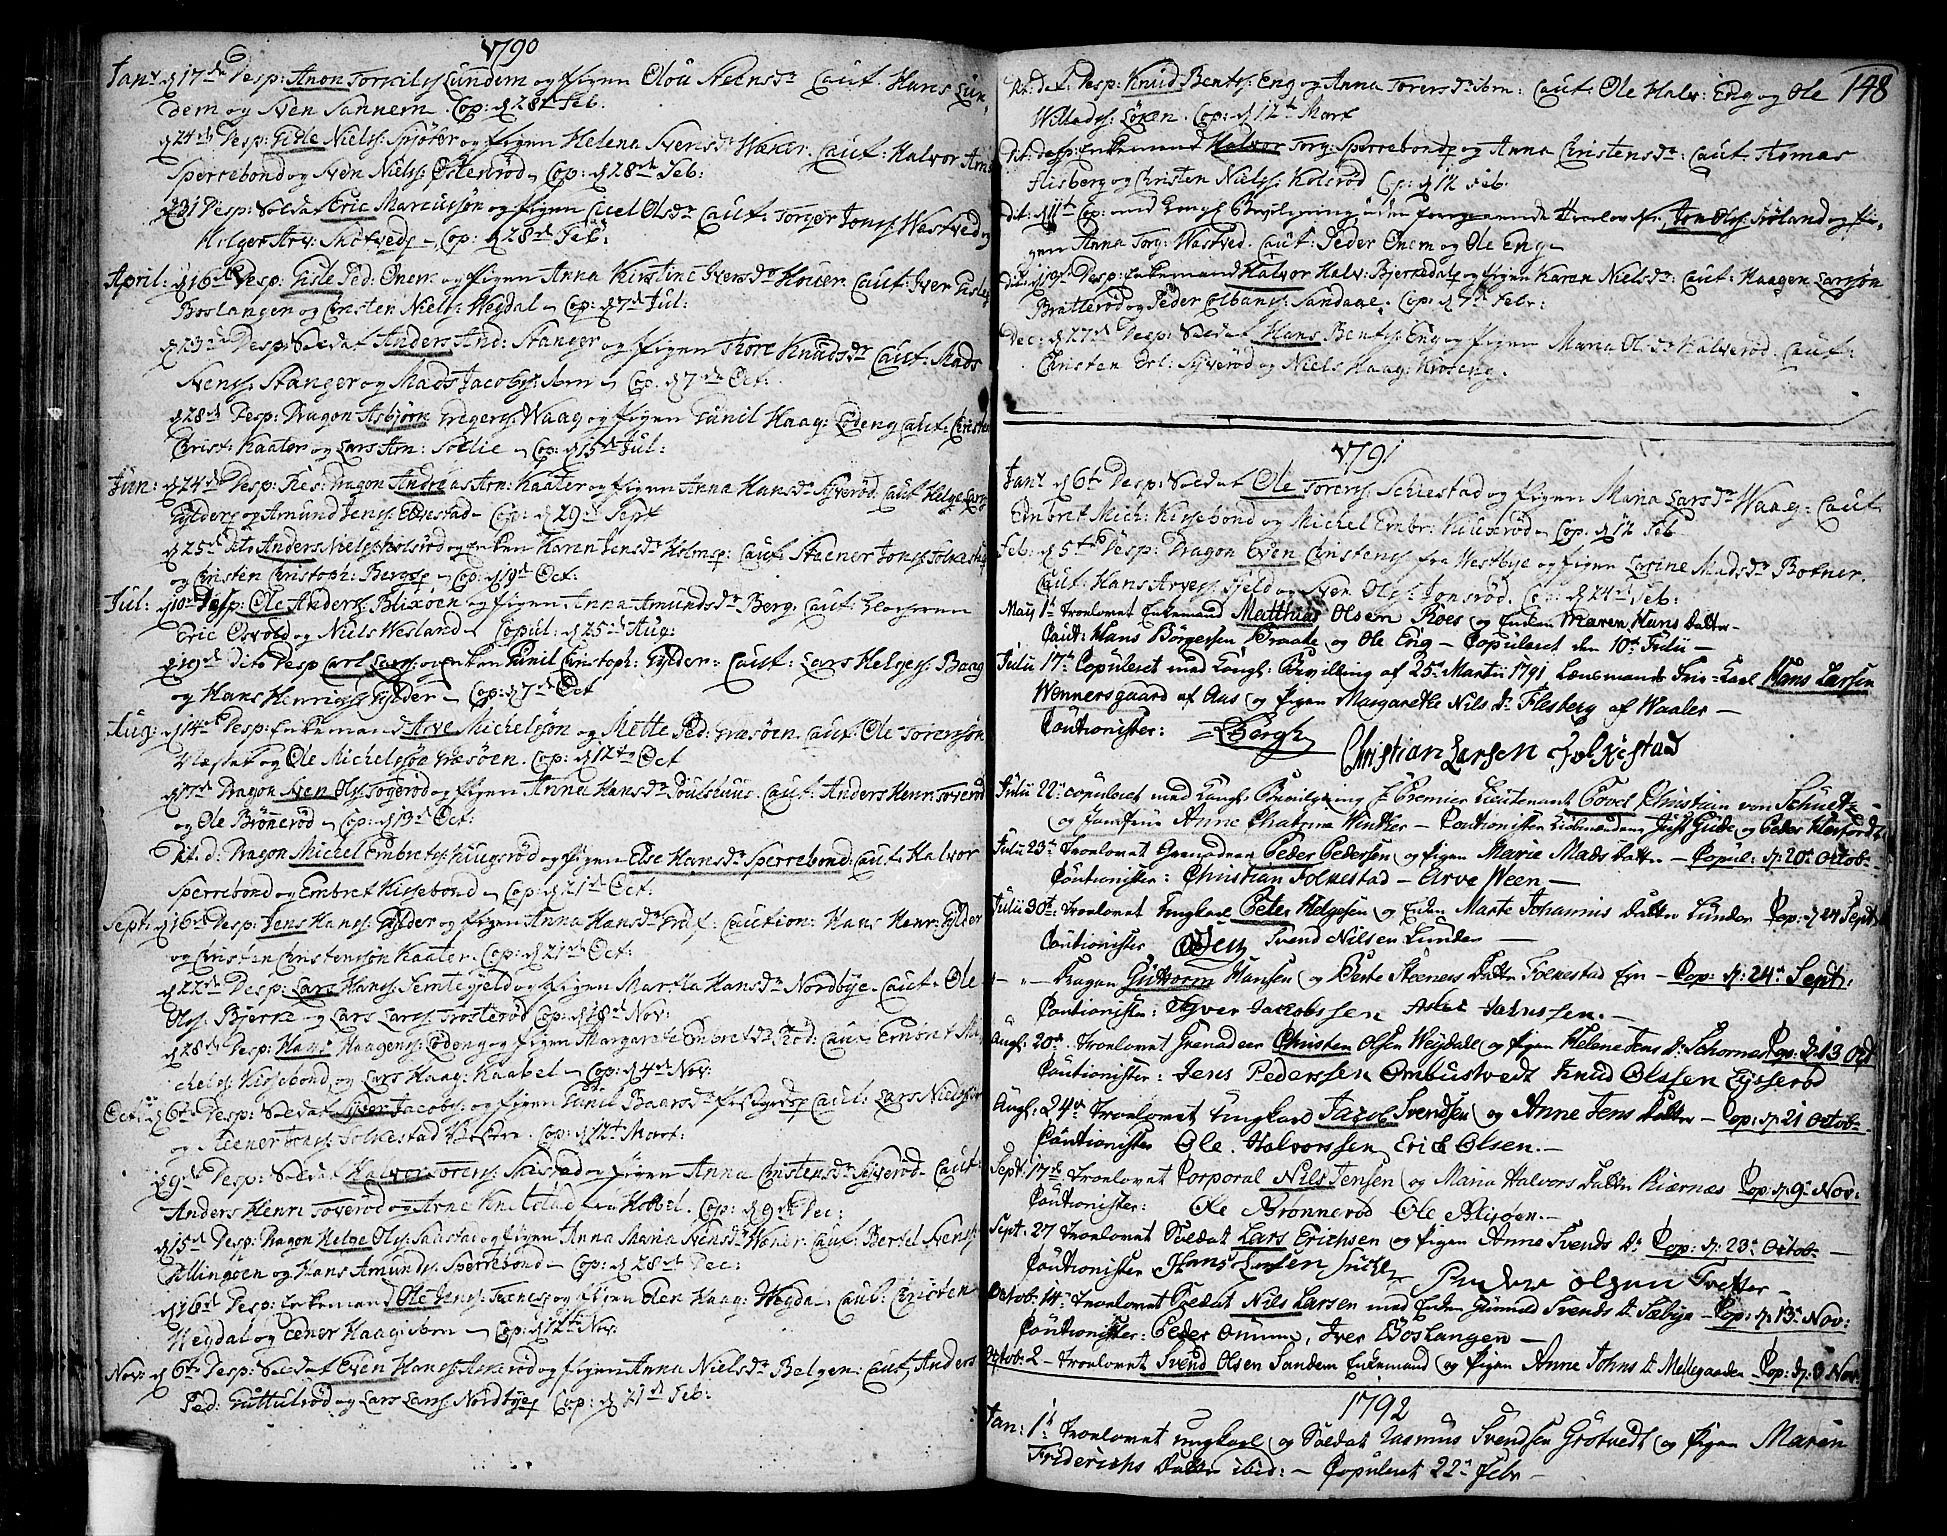 1790
Jan: d 17de Desp: Anon Torkilss: Lundem og Pigen Olou Steensdr Caut: Hans Lun,
dem og Sven Sannem. Cop: d 28de Feb:
d 24de Desp: Gisle Nielss: Spjøter og Pigen Helena Svensdr Waker. Caut: Halvor Arn:
Sperrebond og Sven Nielss: Østerød Cop: d 28de Feb:
d 31 Desp: Soldat Eric Marcussøn og Pigen Olsdr Caut: Torger Jonss: Wastved og
Helger Arv: Skotved Cop: d 28de Feb:
April: d 16de Desp: Gisle Ped: Onem og Pigen Anna Kirstine Iversdr Houer. Caut: Iver Gisless:
Boslangen og Christen Nielss: Weydal Cop: d 7de Jul:
d 23de Desp: Soldat Anders And: Stanger og Pigen Thore Knudsdr Caut: Mads
Svenss: Stanger og Mads Jacobss: Cop: d 7de Oct:
d 28de Desp: Dragon Asbjørn Waag og Pigen Gunil Haag: Lødeng Caut: Christen
Christ: Kaater og Lars Arn: Sollie Cop: d 15de Jul:
Jun: d 24de Desp: Res: Dragon Andreas Arn: Kaater og Pigen Anna Hansdr Syverød. Caut Helge Larss:
Gylder og Amund Jenss: Cop: d 29de Sept
d 25de dito Anders Nielss: Kolsrød og Enken Karen Jensdr Holms: Caut: Steener Jonss: Folkestad
og Christen Christoph: Berg Cop: d 19de Oct:
Jul: d 10de Desp: Ole Anderss: Blixøen og Pigen Anna Amundsdr Berg: Caut:
Eric Osvold og Niels Wesland Copul: d 25de Aug:
d 19de dito Desp Carl Larss: og Enken Gunil Christoph: Gylder: Caut: Lars Helgess: Baag
og Hans Henricss: Gylder Cop: d 7de Oct
Aug: d 14de Desp: Enkemand Arve Michelsøn og Mette Ped: Græsøen. Caut: Ole Torersøn
og Ole Michelsøn Græsøen. Cop: d 12te Oct
d 7de Dragon Sven Olss: Togerød og Pigen Anna Hansdr Poulshuus. Caut: Anders Henr: Toverød
og Ole Brønnerød Cop: d 13de Oct:
Dit d: Dragon Michel Embretss: og Pigen Else Hansdr Sperrebond: Caut: Halvor
Sperrebond og Embret Kissebond Cop: d 21de Oct:
Sept: d 16de Desp: Jens Hanss: Gylder og Pigen Anna Hansdr Caution: Hans Henr: Gylder
og Christen Christensøn Kaater. Cop: d 21de Oct:
d 22de Desp: Lars Hanss: og Pigen Martha Hansdr Nordbye. Caut: Ole
Olss: Bjerke og Lars Larss: Trosterød Cop: d 18de Nov:
d 28de Desp: Hans Haagenss: Lødeng og Pigen Margarete Embretsdr Rød: Caut Embret Mi
chelss: Kissebond og Lars Haag: Kaabel Cop: d 4de Nov:
Oct: d 6te Desp: Soldat Syver Jacobss: og Pigen Gunil Baarsdr Caut: Lars Nielssøn
og Steener Jonss: Folkestad Cop: d 12te Mart:
d 9de Desp: Soldat Halvor Torerss: og Pigen Anna Christensdr Syverød. Caut:
Anders Henr: Toverød og Arne Knalstad fra Hobbel. Cop: d 9de Dec:
d 15de Desp: Dragon Helge Olss: og Pigen Anna Maria Svensdr Caut: Bertel Svenss:
Killingøen og Hans Amunds: Sperrebond Cop: d 28de Dec:
d 16de Desp: Enkemand Ole Jenss: og Pigen Elen Haag: Weydal Caut: Christen
Weydal og Peder Haag: Cop: d 12te Nov:
Nov: d 6te Desp: Soldat Even Hanss: Askerød og Pigen Anna Nielsdr Belgen: Caut, Anders
Ped: Guttulrød og Lars Larss: Nordbye Cop: d 21de Feb:
148
Desp: Knud Bentss: Eng og Anna Torersdr Caut: Ole Halv: Eng og Ole
Willadss: Løken. Cop: d 12te Mart
Dit: Desp: Enkemand Halvor Torg: Sperrebond og Anna Christensdr: Caut: Tomas
Flisberg og Christen Nielss: Kolsrød Cop: d 12 Feb:
Dit: d 11te Cop: med Kongl: Bevilgning uden foregaaende Trolovelse, Jon Olss: Siøland og Pi,
gen Anna Torg: Wastved. Caut: Peder Onem og Ole Eng
Dit: d 19de Desp: Enkemand Halvor Halv: Bjerkedal og Pigen Karen Nielsdr: Caut: Haagen Larssøn
Bratterød og Peder Colbanss: Sandaae. Cop: d 4de Febr:
Dec: d 27de Desp: Soldat Hans Bentss: Eng og Pigen Maria Olsdr Halverød. Caut:
Christen Erl: Syverød og Niels Haag: Kroseng.
1791
Jan: d 6te Desp: Soldat Ole Torerss: Schiestad og Pigen Maria Larsdr Waag: Caut:
Embret Mich: Kissebond og Michel Embr: Cop: d 12 Feb
Feb: d 5te Desp: Dragon Even Christenss: fra Westbye og Pigen Lorine Madsdr Botner.
Caut: Hans Arvess: Fjeld og Sven Olss: Jonsrød. Cop: d 24de Feb:
Maij 1te Troelovet Enkemand Matthias Olsen Roes og Enken Maren Hans datter
Caut: Hans Börgessen Braate og Ole Eng – Copuleret den 10te Julii –
Julii 17de Copuleret med Kongl: Bevilling af 25de Martii 1791 Lænsmands Fuld-Karl Hans Larsen
Wennersgaard af Aas og Pigen Margarethe Nils Dr Flesberg af Waaler –
Cautionister: Bergh Christian Larsen Folkestad
Julii 22de copuleret med Kongl: Bevilgning H: Premier Lieutenant Povel Christian von Schultz –
og Jomfrue Anne Chatrine Winther – Cautionister Lieutenanterne Just Gude og Peder
Julii 23de Troelovet Grenadeer Peder Pedersen og Pigen Marie Mads datter – Copul: d: 20de Octob:
Cautionister: Christian Folkestad – Arve Ween –
Julii 30te: Troelovet Ungkarl Peter Helgesen og Enken Marte Johannis datter Lunder Cop: d: 24 Sept
Cautionister Svend Nilsen Lunder –
– „ – Dragon Guttorm Hansen og Berte Steeners datter Folkestad Eyen – Cop: d: 24de Sept:
Cautionister: Syver Jacobssen Aslac Johnssen. –
Augl: 20de. Troelovet Grenadeer Christen Olsen Weydahl og Pigen Helene Jens Dr Schornes Cop: d: 13 Oct
Cautionister: Jens Pederssen Ombustvedt Knud Olssen Lysserød
Augl: 24de Troelovet Ungkarl Jacob Svendsen og Anne Jens datter – Cop: d: 21 Octob:
Cautionister Ole Halvorssen Erich Olsen. –
Sept: 17de Troelovet Corporal Nils Jensen og Maria Halvors datter Kiærnæs Cop: d: 9de Nov:
Cautionister: Ole Brønnerød Ole Blixøen. –
Sept: 27 Troelovet Soldat Lars Erichsen og Pigen Anne Svends Dr Cop: d: 23de Octob: –
Cautionister Hans Larsen Peder Olsen Tvetter –
Octob: 14de Troelovet Soldat Nils Larsen med Enken Gunnild Svends Dr Sæbye – Cop: d: 13de Nov:
Cautionister: Peder Onum, Iver Boslangen –
Octob: 2 – Troelovet Svend Olsen Sandem Enkemand og Pigen Anne Johns Dr Mellegaarden Cop: d: 6 Nov:
1792
Jan: 1te Troelovet Ungkarl og Soldat Rasmus Svendsen Grötvedt og Pigen Maren
Friderichs datter ibid: – Copuleret 22de Febr –